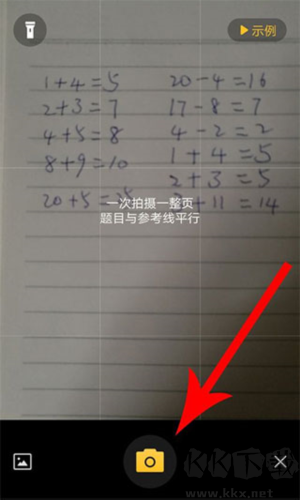 示例
1+4=5
2+3=7
4+5=8
8+9=10
20+5=
20-4=16
17-8=7
4-2=2
1+4=5
2+3=5
+11=14
一次拍摄一整页
题目与参考线平行
KK下载
www.kkx.net